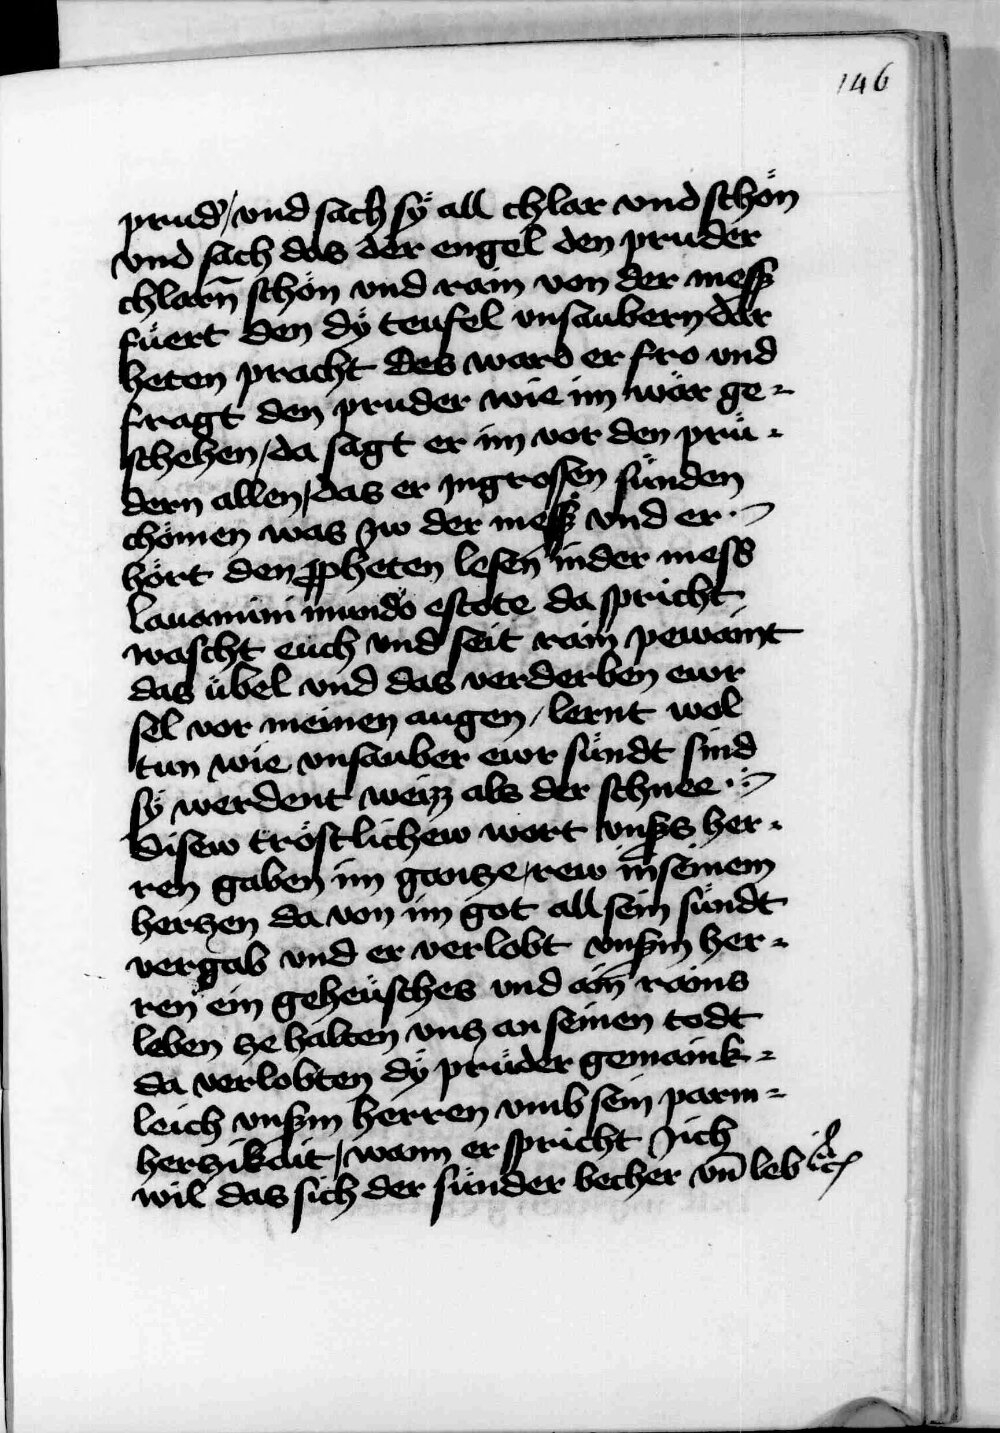 146
prud᷑ / vnd sach sÿ all chlar vnd schön
vnd sach das der engel den pruder
chlarn̄ schön vnd rain von der mess
füert den dÿ teufel vnsaubern dar
heten pracht des ward er fro vnd
fragt den pruder wie im wär ge-
schehen / da sagt er im vor den prü-
dern allen / das er in grossen sünden
chömen was zw der mess vnd er
hört den ꝓpheten lesen in der mess
lauamini mundo estote da spricht
wascht euch vnd seit rain pewaint
das übel vnd das verderben ewr
sel vor meinen augen / lernt wol
tun wie vnsauber ewr sündt sind
sÿ werdent weizz als der schnee
disew tröstlichew wort vnsers her-
ren gaben im gantze / rew in seinem
hertzen da von im got all sein sündt
vergab vnd er verlobt vnserm her-
ren ein geheüsches vnd ain rains
leben ze halten vntz an seinen todt
da verlobten dÿ prüder gemaink-
leich vnserm herren vmb sein parm-
hertzikait / wann er spricht Jich
wil das sich der sünder becher vn̄ leb